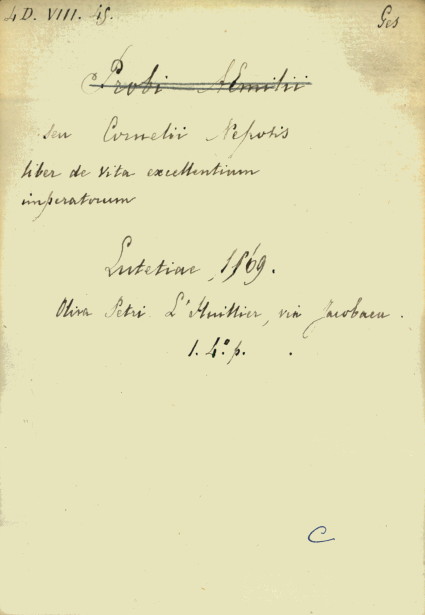 4 D. VIII. 45. Ges
Probi Aemilii
seu Cornelii Nepotis
liber de vita excellentium
imperatorum
Lutetiae, 1569.
Oliva Petri L'Huillier, via Jacobaea.
1. 4° p.
C